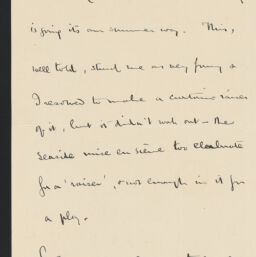 is going its own summer way. This,
well told, struck me as very funny &
I resolved to make a curtain raiser
of it, but it didn't work out – the
seaside mise en scène too elaborate
for a 'raiser', & not enough in it for
a play.